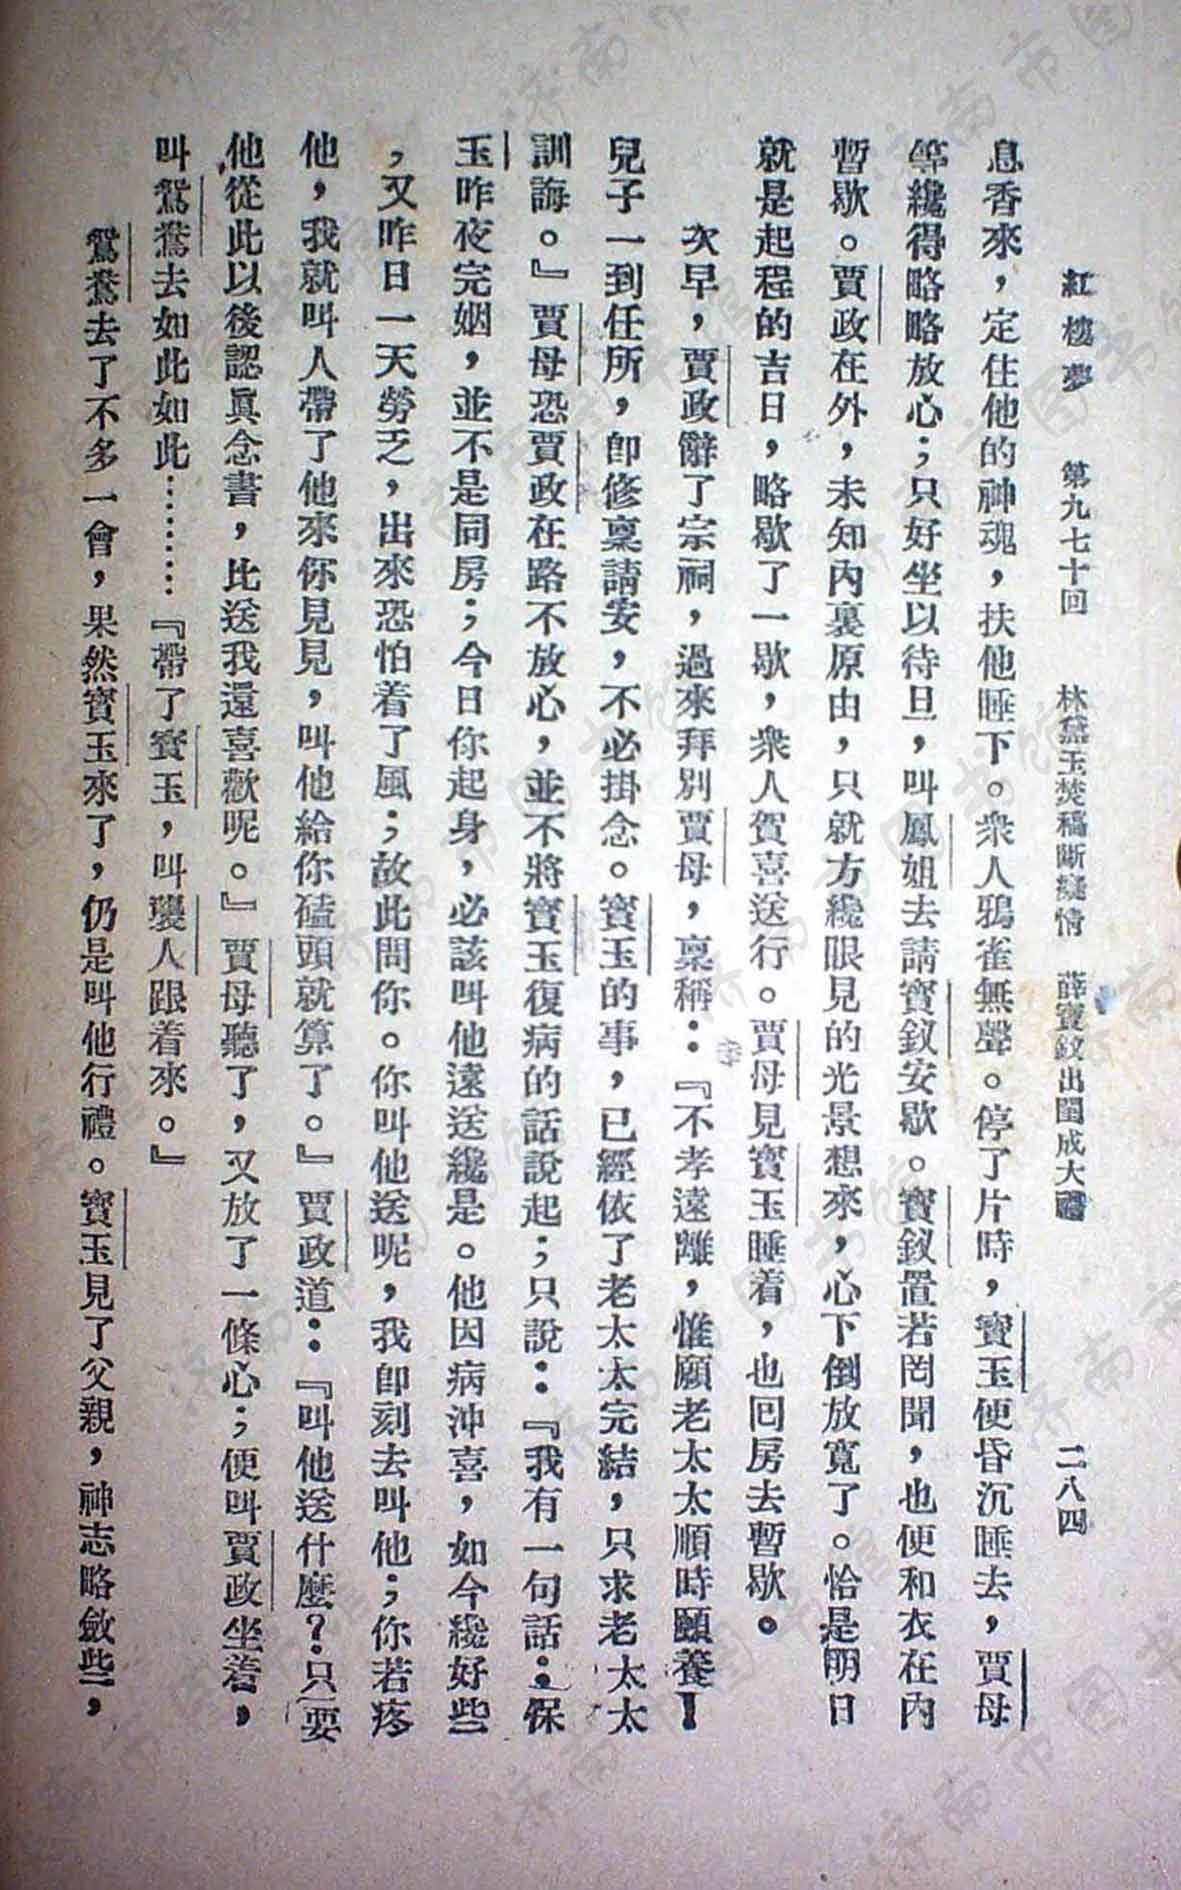 紅樓夢　第九七十回　林黛玉焚稿斷癡情　薛寶釵出閨成大禮　二八四
息香來，定住他的神魂，扶他睡下。衆人鴉雀無聲。停了片時，寶玉便昏沉睡去，賈母
等纔得略略放心；只好坐以待旦，叫鳳姐去請寶釵安歇。寶釵置若罔聞，也便和衣在內
暫歇。賈政在外，未知內裏原由，只就方纔眼見的光景想來，心下倒放寬了。恰是明日
就是起程的吉日，略歇了一歇，衆人賀喜送行。賈母見寶玉睡着，也回房去暫歇。
次早，賈政辭了宗祠，過來拜別賈母，稟稱：『不孝遠離，惟願老太太順時頤養！
兒子一到任所，卽修稟請安，不必掛念。寶玉的事，已經依了老太太完結，只求老太太
訓誨。』賈母恐賈政在路不放心，並不將寶玉復病的話說起；只說：『我有一句話：保
玉昨夜完姻，並不是同房；今日你起身，必該叫他遠送纔是。他因病沖喜，如今纔好些
，又昨日一天勞乏，出來恐怕着了風；故此問你。你叫他送呢，我卽刻去叫他；你若疼
他，我就叫人帶了他來你見見，叫他給你磕頭就算了。』賈政道：『叫他送什麼？只要
他從此以後認眞念書，比送我還喜歡呢。』賈母聽了，又放了一條心；便叫賈政坐着，
叫鴛鴦去如此如此………『帶了寶玉，叫襲人跟着來。』
鴛鴦去了不多一會，果然寶玉來了，仍是叫他行禮。寶玉見了父親，神志略斂些，
济南市图书馆